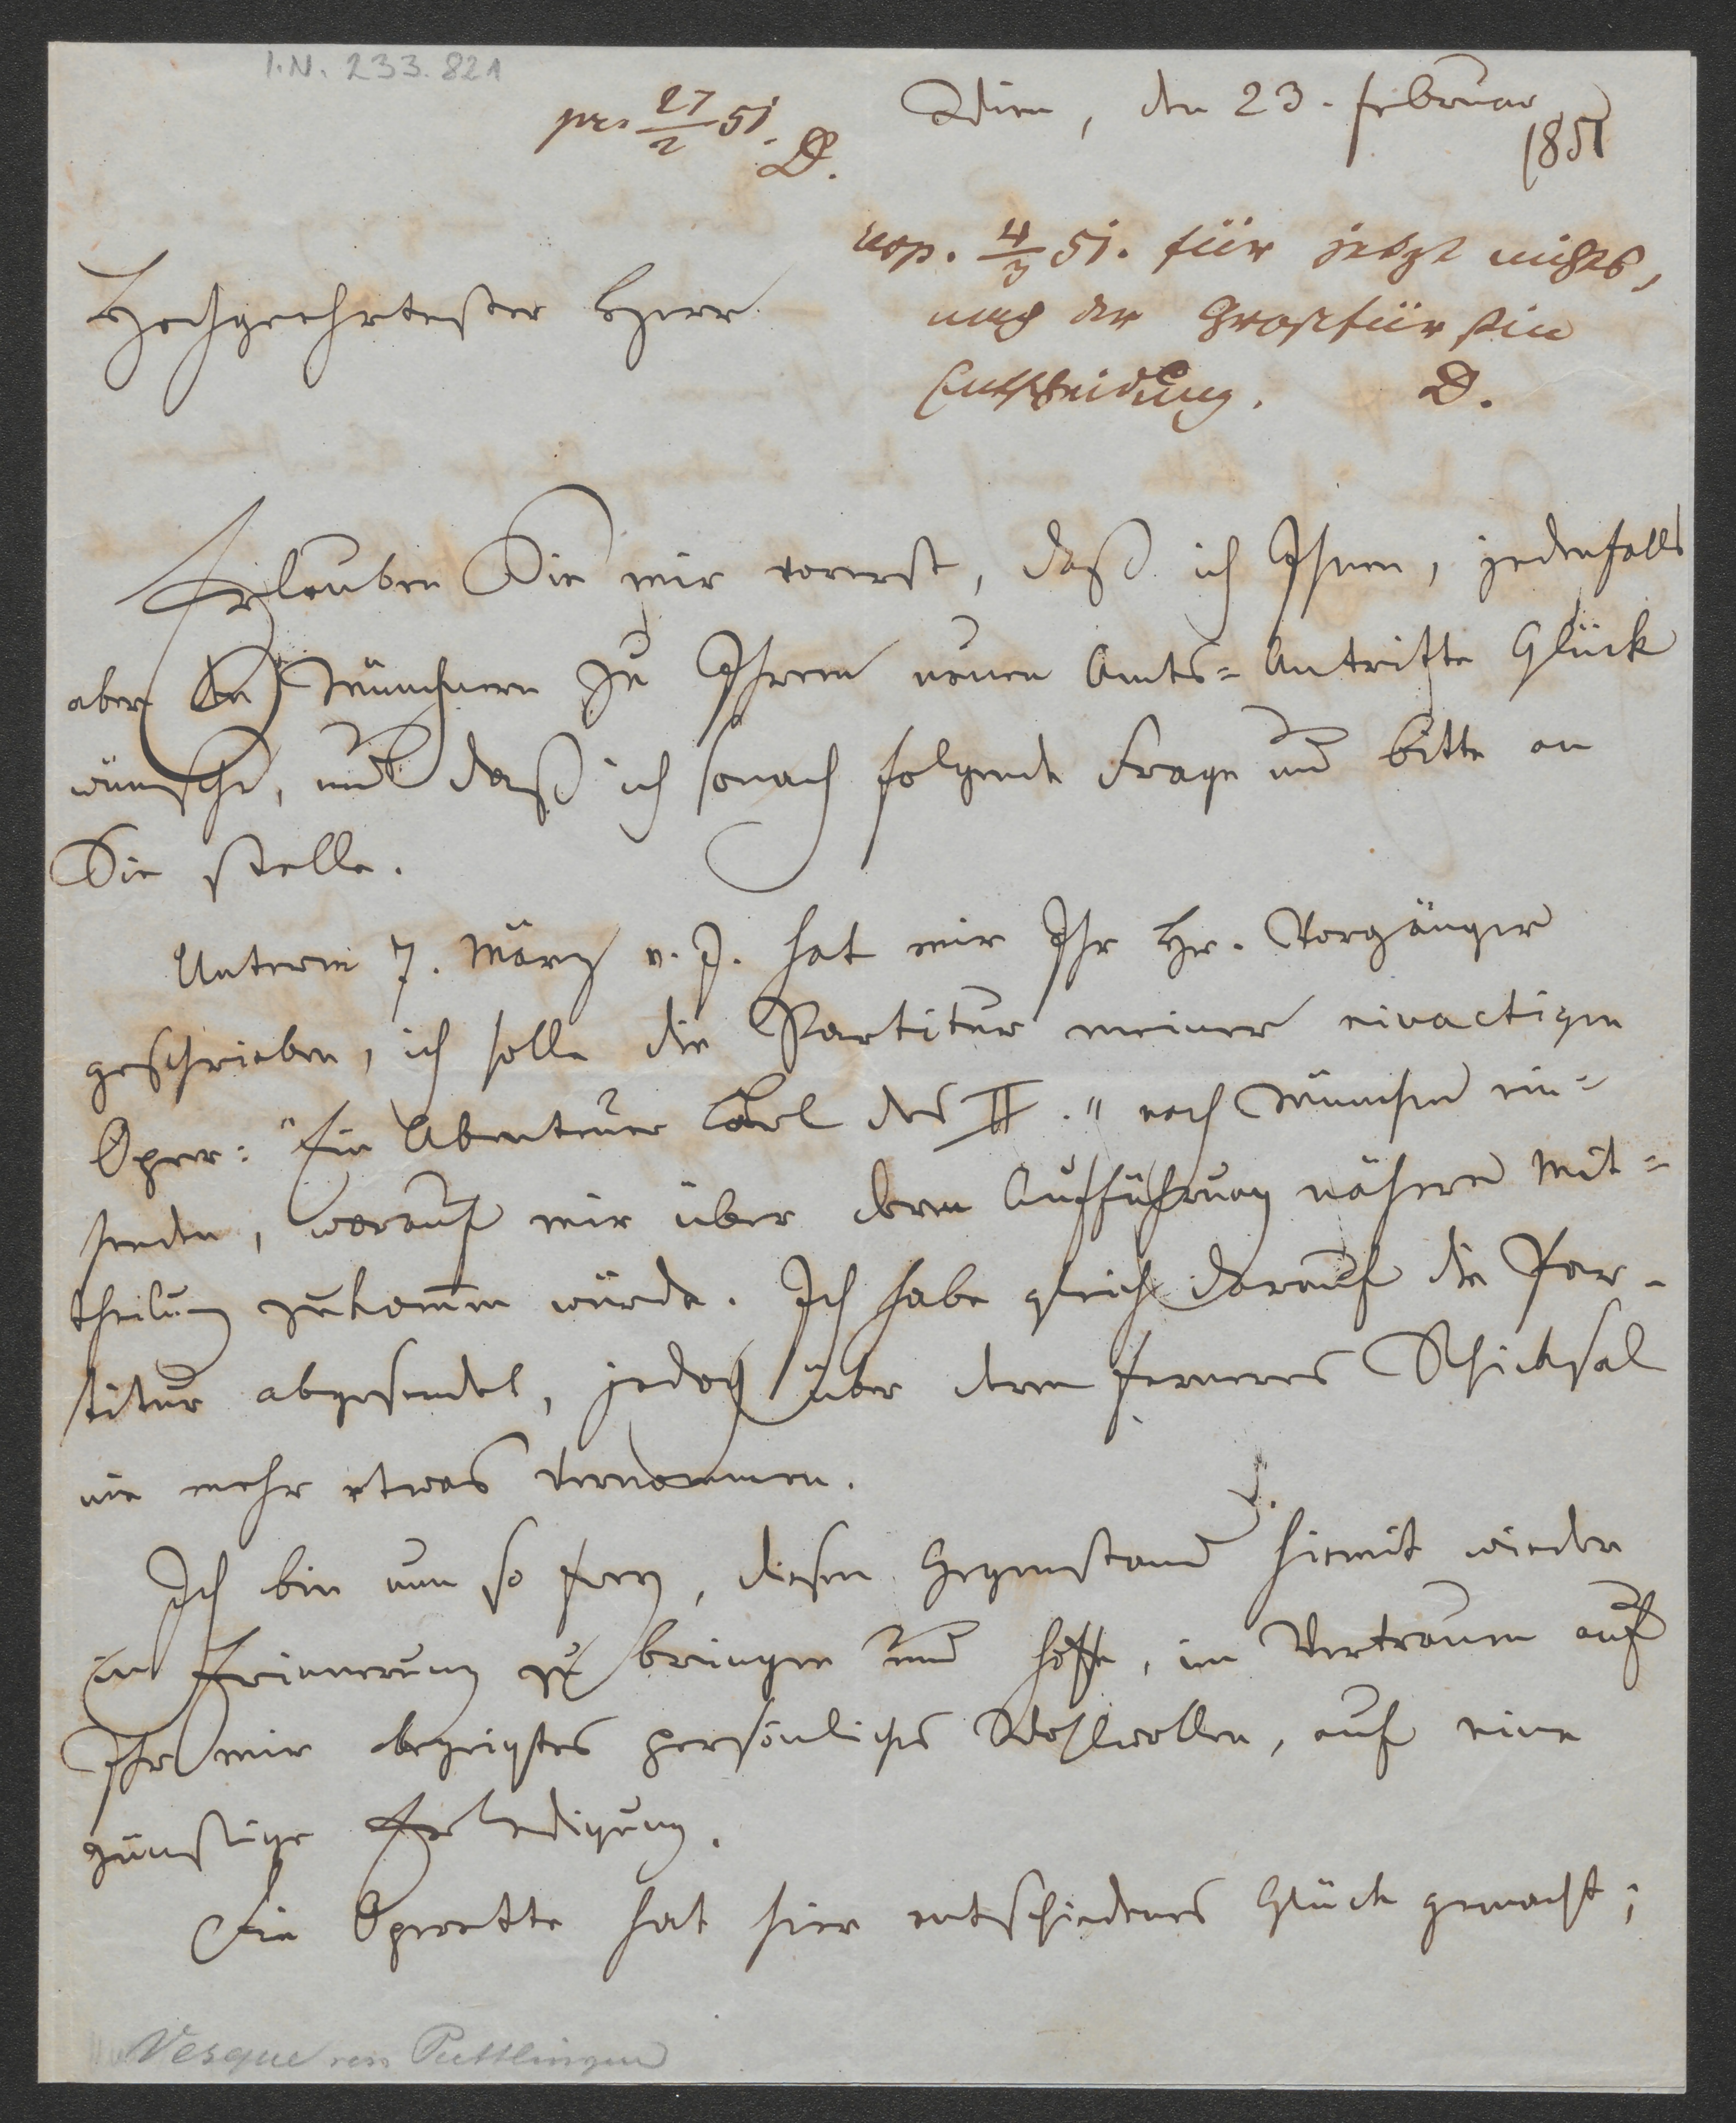 I.N. 233.821
prs 27/2 51. D.
Wien, den 23. Februar
1851
resp. 4/3 51. für jetzt nichts,
nach der Großfürstin
Entscheidung. D.
Hochgeehrtester Herr
Erlauben Sie mir vorerst, daß ich Ihnen, jedenfalls
aber den Münchnern zu Ihrem neuen Amts=Antritte Glück
wünsche, und daß ich sonach folgende Frage und Bitte an
Sie stelle.
Unterm 7. März v. J. hat mir Ihr Hr. Vorgänger
geschrieben, ich solle die Partitur meiner einactigen
Oper: "Ein Abenteuer Carl des II." nach München ein=
senden, worauf mir über deren Aufführung nähere Mit=
theilung zukom̅en würde. Ich habe gleich darauf die Par-
titur abgesendet, jedoch über deren ferneres Schicksal
nie mehr etwas vernommen.
Ich bin nun so frey, diesen Gegenstand hiemit wieder
in Erinnerung zu bringen und hoffe, im Vertrauen auf
Ihr mir bezeigtes persönliches Wohlwollen, auf eine
günstige Erledigung.
Die Operette hat hier entschiedenes Glück gemacht;
Vesque von Püttlingen